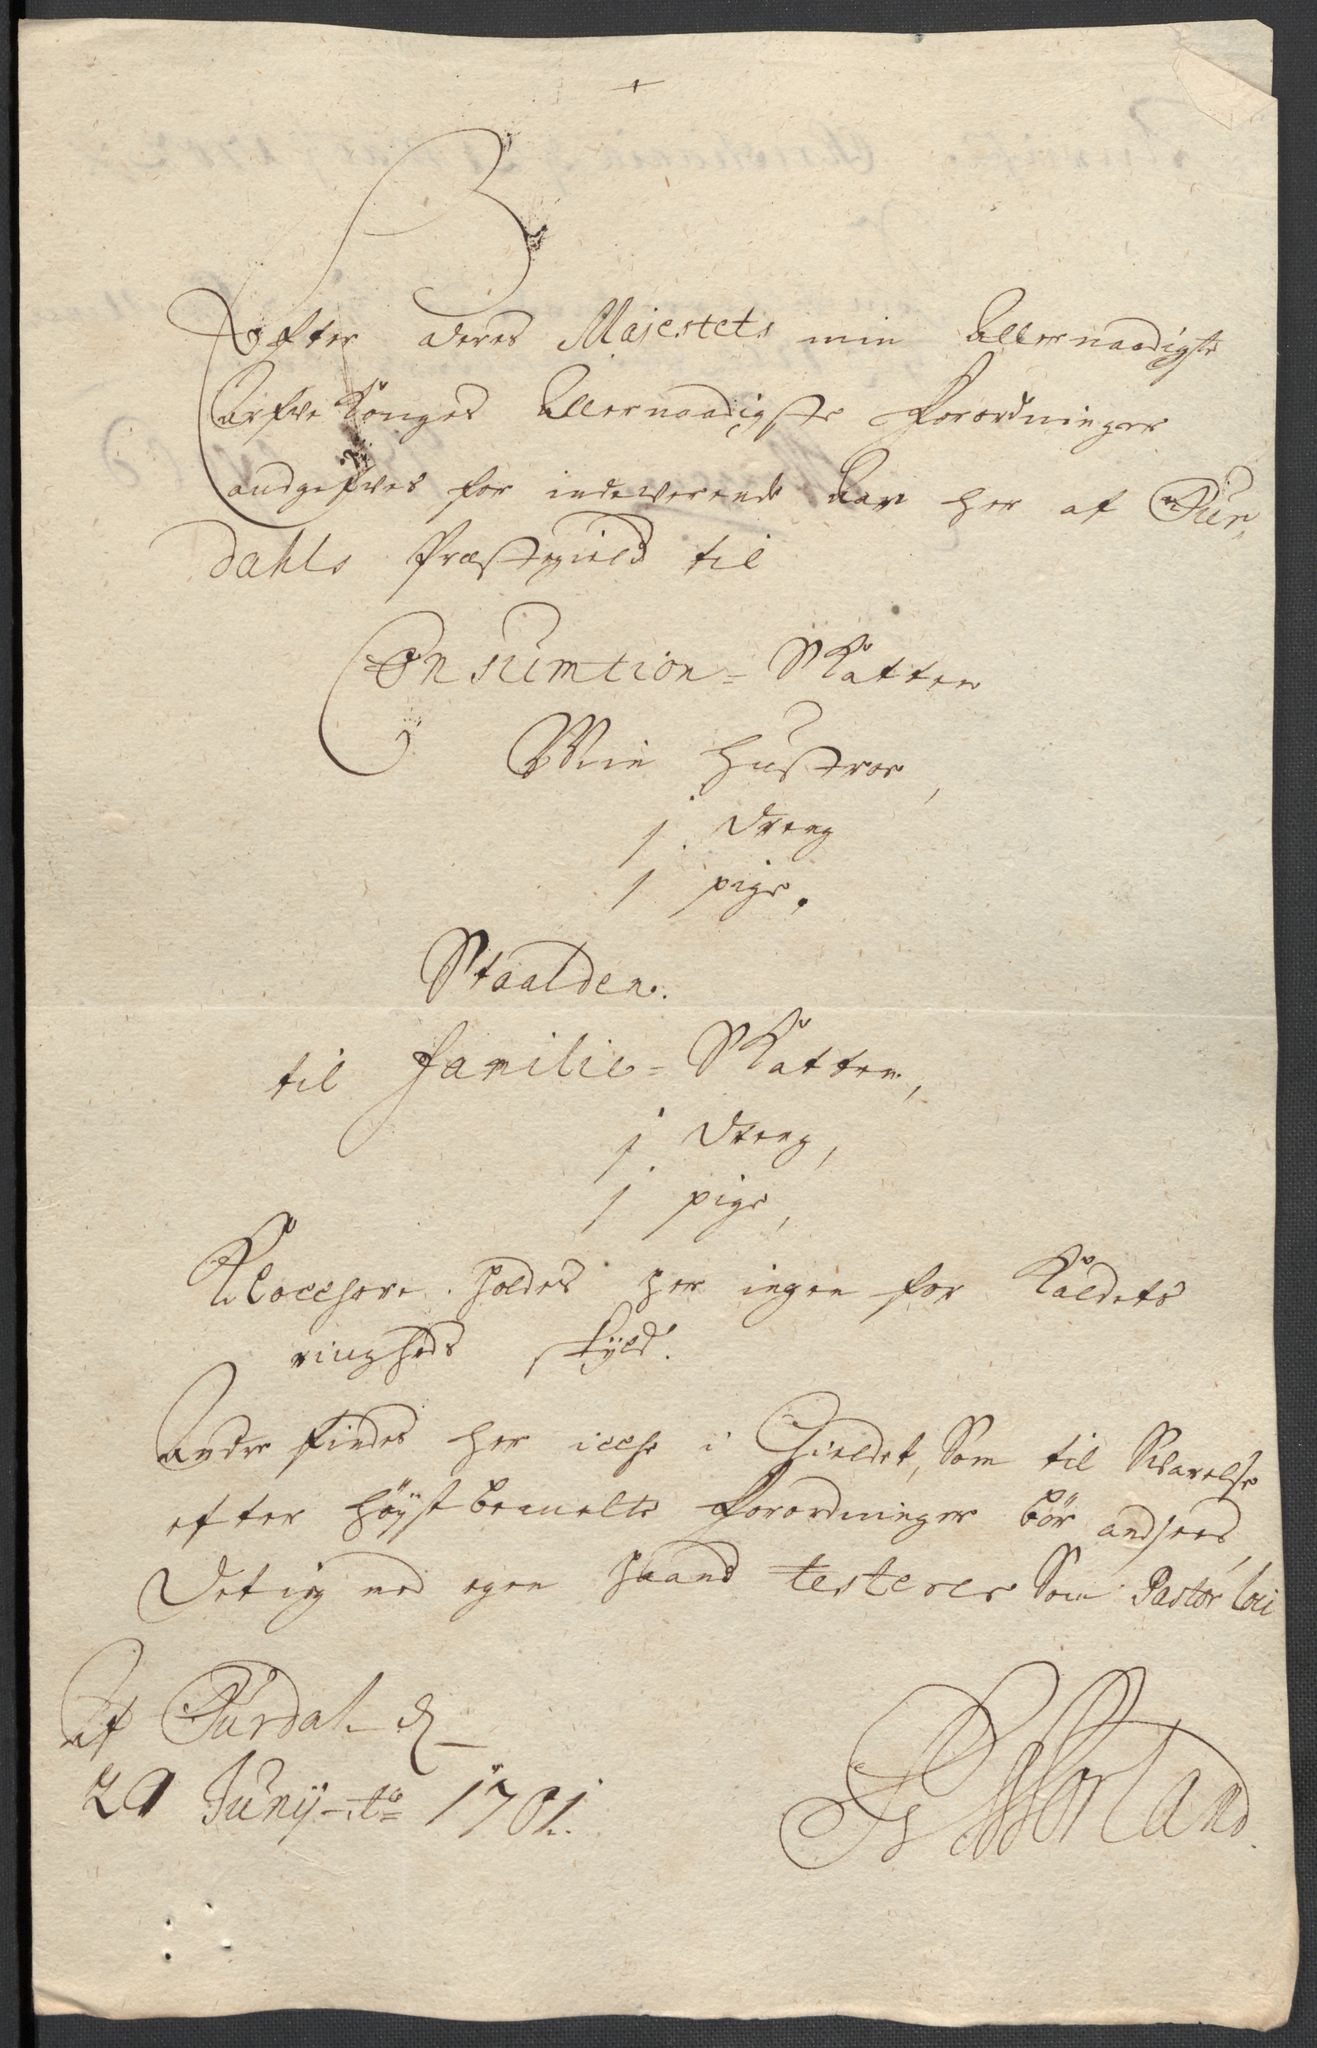 Efter deres Majestets min Allernaadigste
Arfve Konges Allernaadigste Forordninger
andgifves for indeverende Aar her af Sur„
dahls Præstegield til
Consumtion= Skatten
Min Hustroe,
1 dreng
1 pige.
Staalden.
til Familie= Skatten,
1 dreng,
1 pige,
Klocchere holdes her ingen for Kaldets
ringheds skyld.
Andre findes her icche i Gieldet, Som til Svarelse
efter høystbemelte Forordninger bør andsees,
Det ieg med egen Haand testerer Som Pastor loci
Af Surdal d
29 Junij Ao 1701.